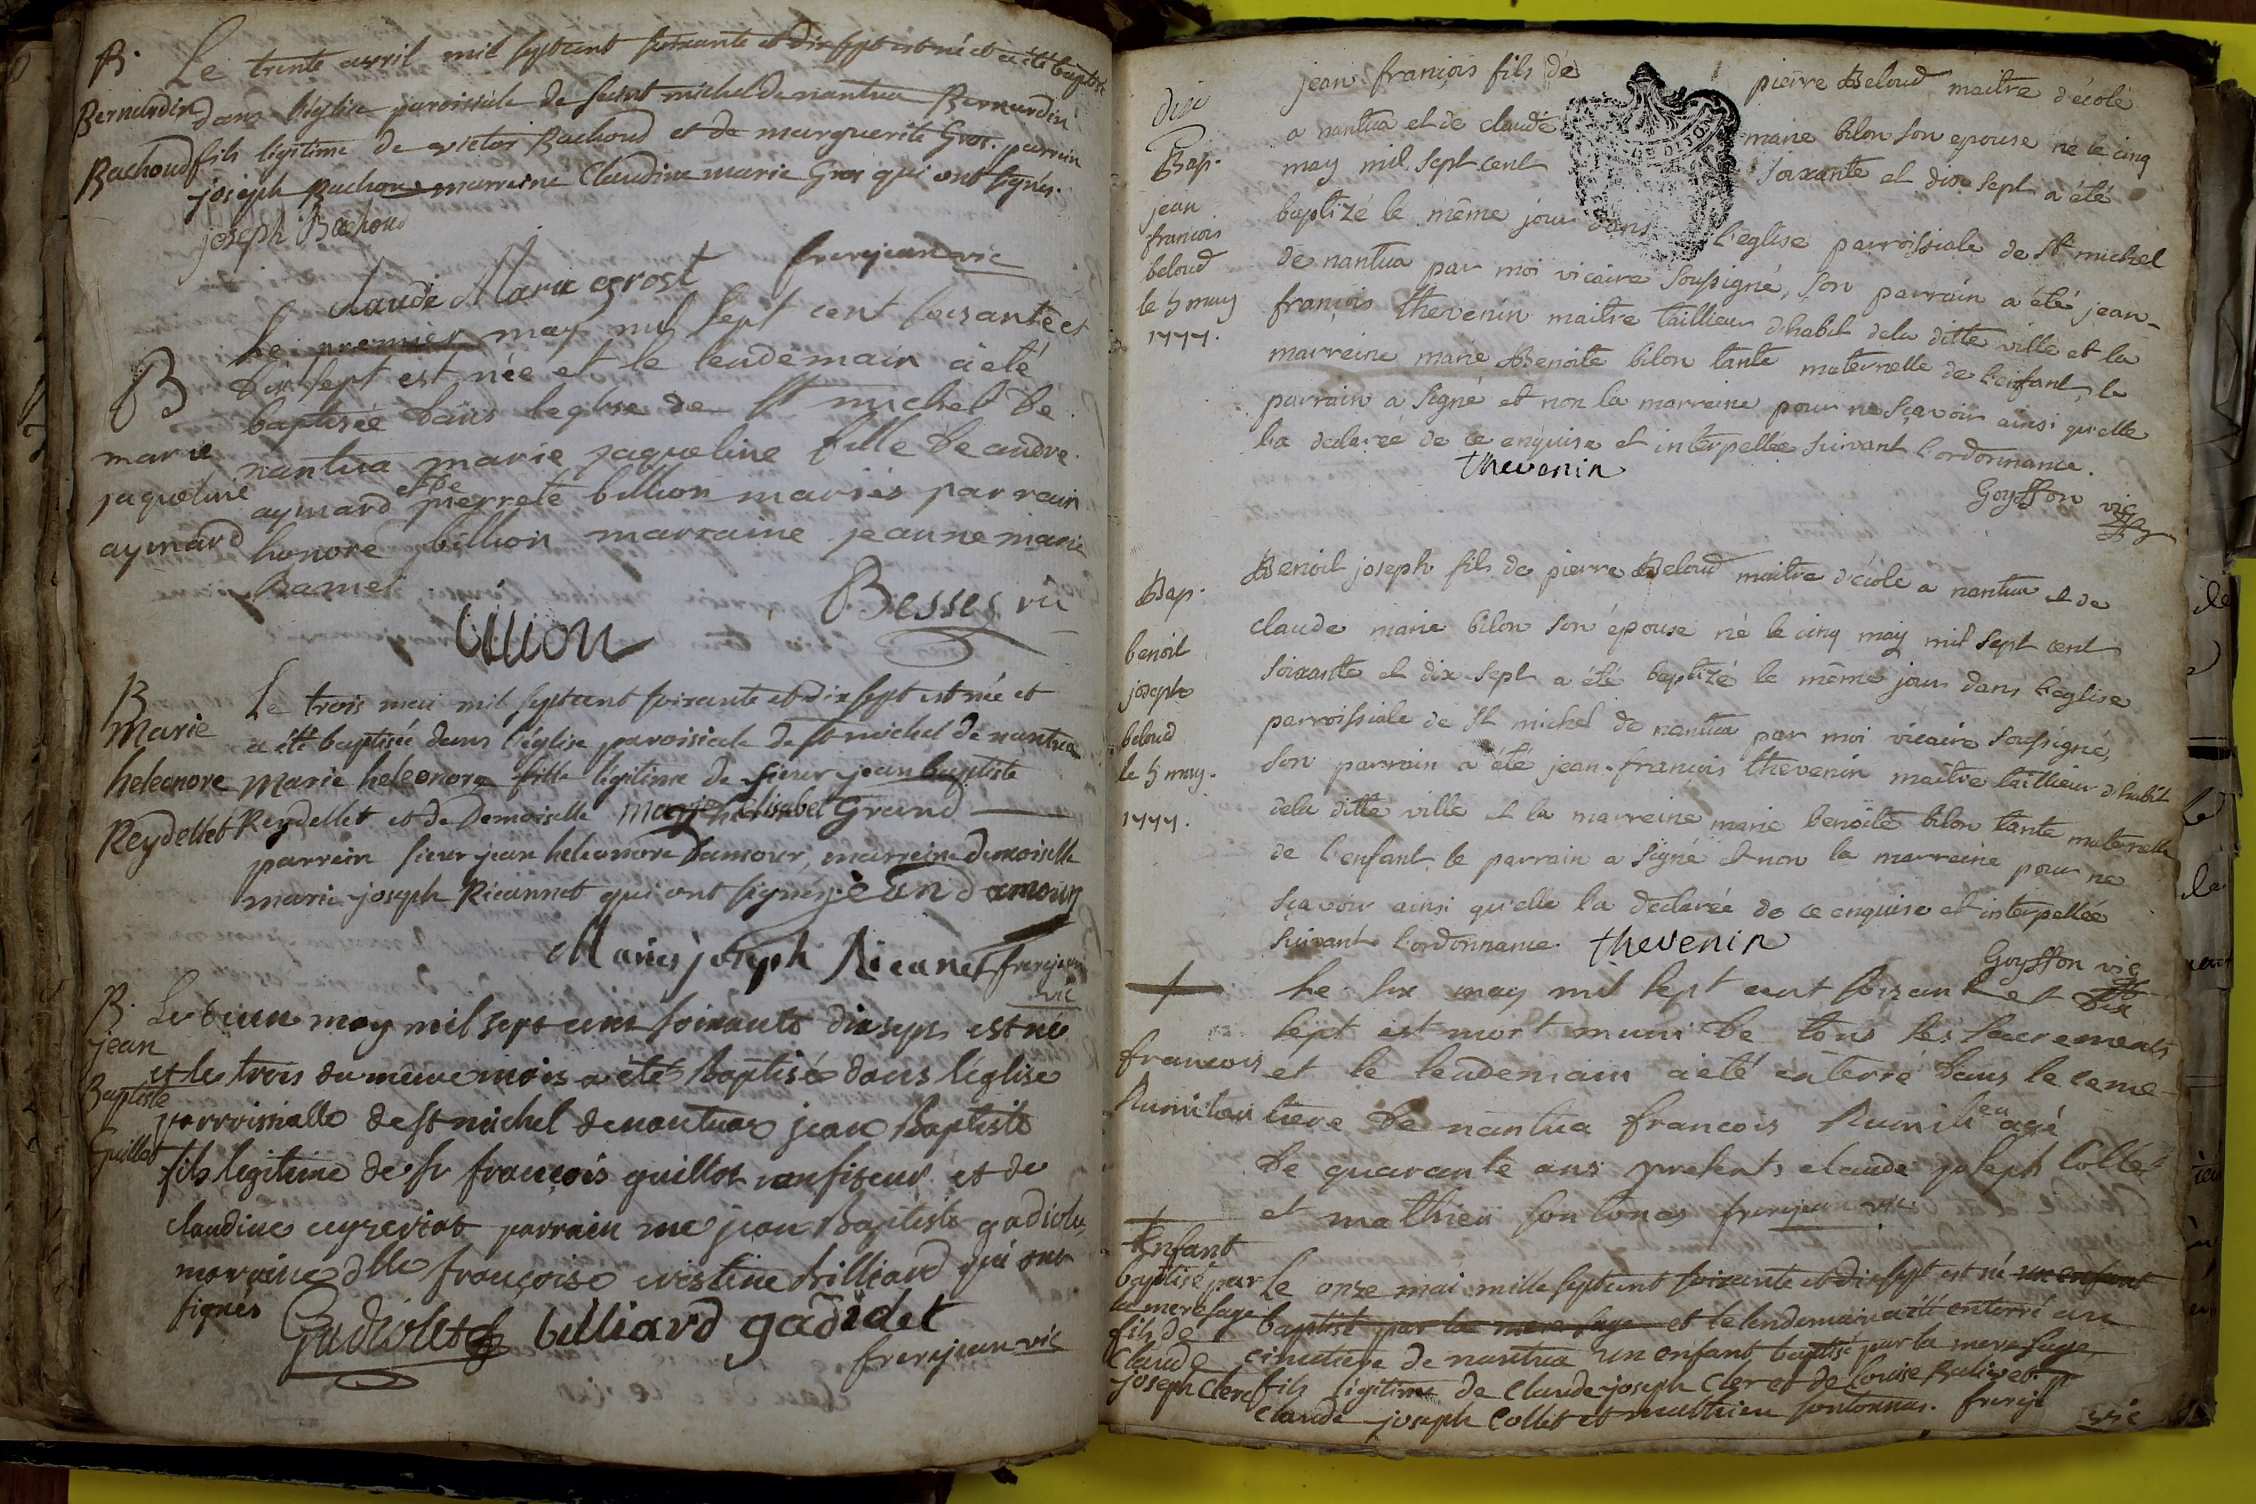 B.
Bernardin
Bachoud
Le trente avril mil septcent soixante et dix sept est né et a été baptisé
dans l'église paroissiale de saint michel de nantua Bernardin
fils légitime de victor Bachoud et de marguerite Gros. parrain
joseph Bachoud marreine Claudine marie Gros qui ont signés.
joseph Bachoud
Claude Marie grost frerejean vic
B
marie
jaqueline
aymard
Le premier may mil sept cent soixante et
dix sept est née et le lendemain a été
baptisée dans leglise de st michel de
nantua marie jaqueline fille de andré
aymard et de pierrete billion mariés parrain
honore billion marraine jeanne marie
Ramel
billion Besses vic
B
Marie
heleonore
Reydellet
Le trois mai mil septcent soixante et dix sept est née et
a été baptisée dans l'église paroisiale de st michel de nantua
Marie heleonore fille légitime de sieur jean baptiste
Reydellet et de Demoiselle Marie helisabet Grand
parrein sieur jean heleonore Damour, marreine demoiselle
marie joseph Ricannet qui ont signés. jean damour
Marie joseph Ricanet frerejean
vic
B.
jean
Baptiste
Guillot
Le deux may mil sept cent soixante dix sept est né
et le trois du meme mois a été Baptisé dans l'église
parroissialle de st michel de nantua jean Baptiste
fils legitime de sr françois guillot confiseur et de
claudine parrain me jean Baptiste gadiolet
maraine dlle françoise cristine billiard qui ont
signés
Gudiolet billiard gadiolet
frerejean vic
Bap.
jean
francois
beloud
le 5 may
1777.
jean françois fils de pierre Beloud maitre d'école
a nantua et de claude marie bilon son epouse né le cinq
may mil sept cent soixante et dix sept a été
baptizé le même jour dans l'eglise parroissiale de st michel
de nantua par moi vicaire soussigné, son parrain a été jean-
françois thevenin maitre tailleur d'habit dela ditte ville et la
marreine marie Benoite bilon tante maternelle de l'enfant, le
parrain a signé et non la marreine pour ne sçavoir ainsi qu'elle
la declarée de ce enquise et interpellée suivant l'ordonnance.
thevenin
Goyffon vic
Bap.
benoit
joseph
beloud
le 5 may.
1777.
Benoit joseph fils de pierre Beloud maitre d'école a nantua et de
claude marie bilon son épouse né le cinq may mil sept cent
soixante et dix sept a été baptizé le même jour dans l'église
parroissiale de st michel de nantua par moi vicaire soussigné,
son parrain a été jean-françois thevenin maitre taillieur d'habit
dela ditte ville et la marreine marie benoite bilon tante maternelle
de l'enfant, le parrain a signé et non la marreine pour ne
sçavoir ainsi qu'elle l'a declarée de ce enquise et interpellée
suivant l'ordonnance. thevenin
Goyffon vic
francois
Rumileu
Le six may mil sept cent soixante et dix
sept est mort muni de tous les sacrements
et le lendemain a été enterré dans le ceme-
tiere de nantua francois Rumileu agé
de quarante ans presents claude joseph Collet
et mathieu fontonas frerejean vic
Enfant
baptisé par
la mere sage
fils de
Claude
joseph Clerc
Le onze mai mille septcent soixante et dix sept est né un enfant
baptisé par la mere sage et le lendemain a été enterré au
cimetière de nantua un enfant baptisé par la mere sage
fils légitime de Claude joseph Clerc et de Louise Balivet. pr
Claude joseph Collet et mathieu fontonnas. frerej
vic